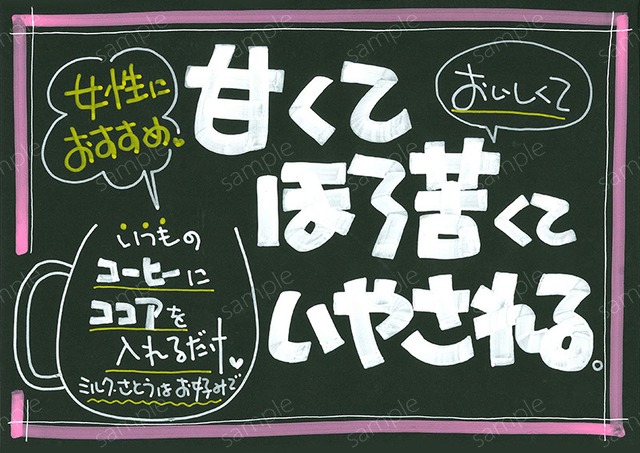 女性に
おすすめ♥
おいしくて
甘くて
ほろ苦くて
いやされる。
いつもの
コーヒーに
ココアを
入れるだけ♥
ミルク・さとうはお好みで
sample